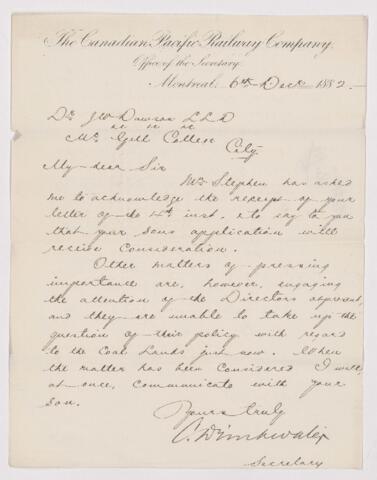 The Canadian Pacific Railway Company.
Office of the Secretary
Montreal, 6th Decr 1882.
Dr. J W Dawson LLD
&c &c &c
McGill College
City
My dear Sir
Mr Stephen has asked
me to acknowledge the receipt of your
letter of the 4th inst. & to say to you
that your sons application will
receive consideration.
Other matters of pressing
importance are, however, engaging
the attention of the Directors at present,
and they are unable to take up the
question of their policy with regard
to the Coal Lands just now. When
the matter has been considered I will,
at once, communicate with your
son.
Yours truly
C. Drinkwater
Secretary